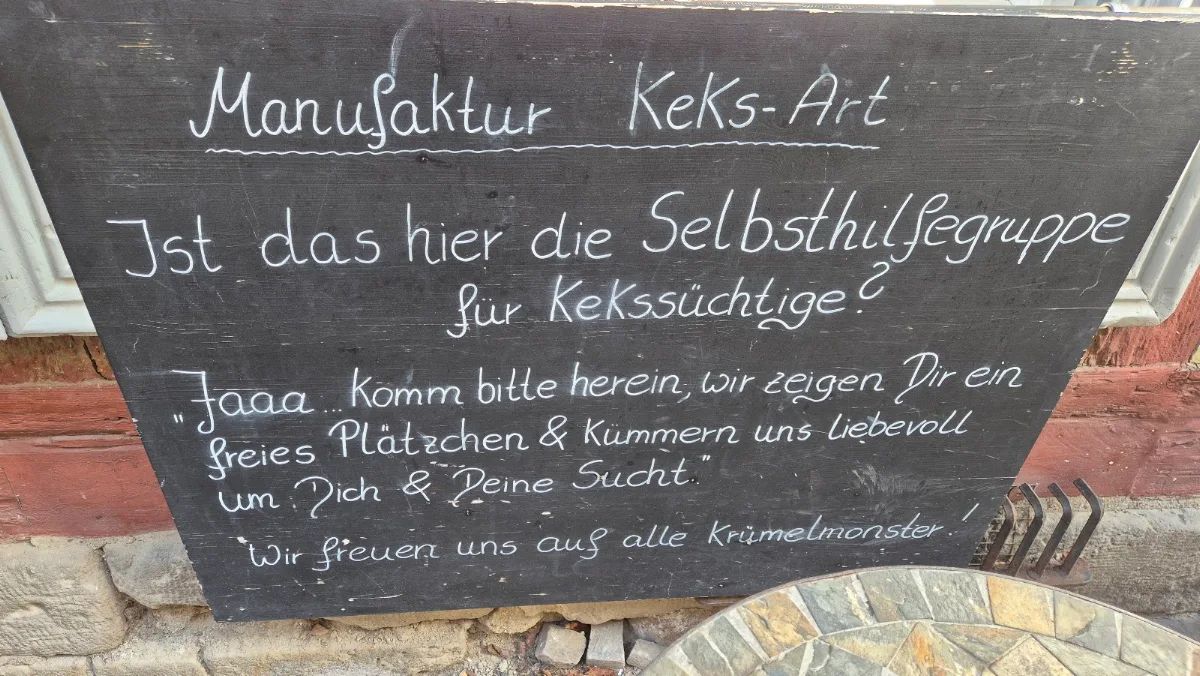 Manufaktur KeKs-Art
Ist das hier die Selbsthilfegruppe
für Kekssüchtige?
"Jaaa... Komm bitte herein, wir zeigen Dir ein
freies Plätzchen & Kümmern uns liebevoll
um Dich & Deine Sucht."
Wir freuen uns auf alle Krümelmonster!